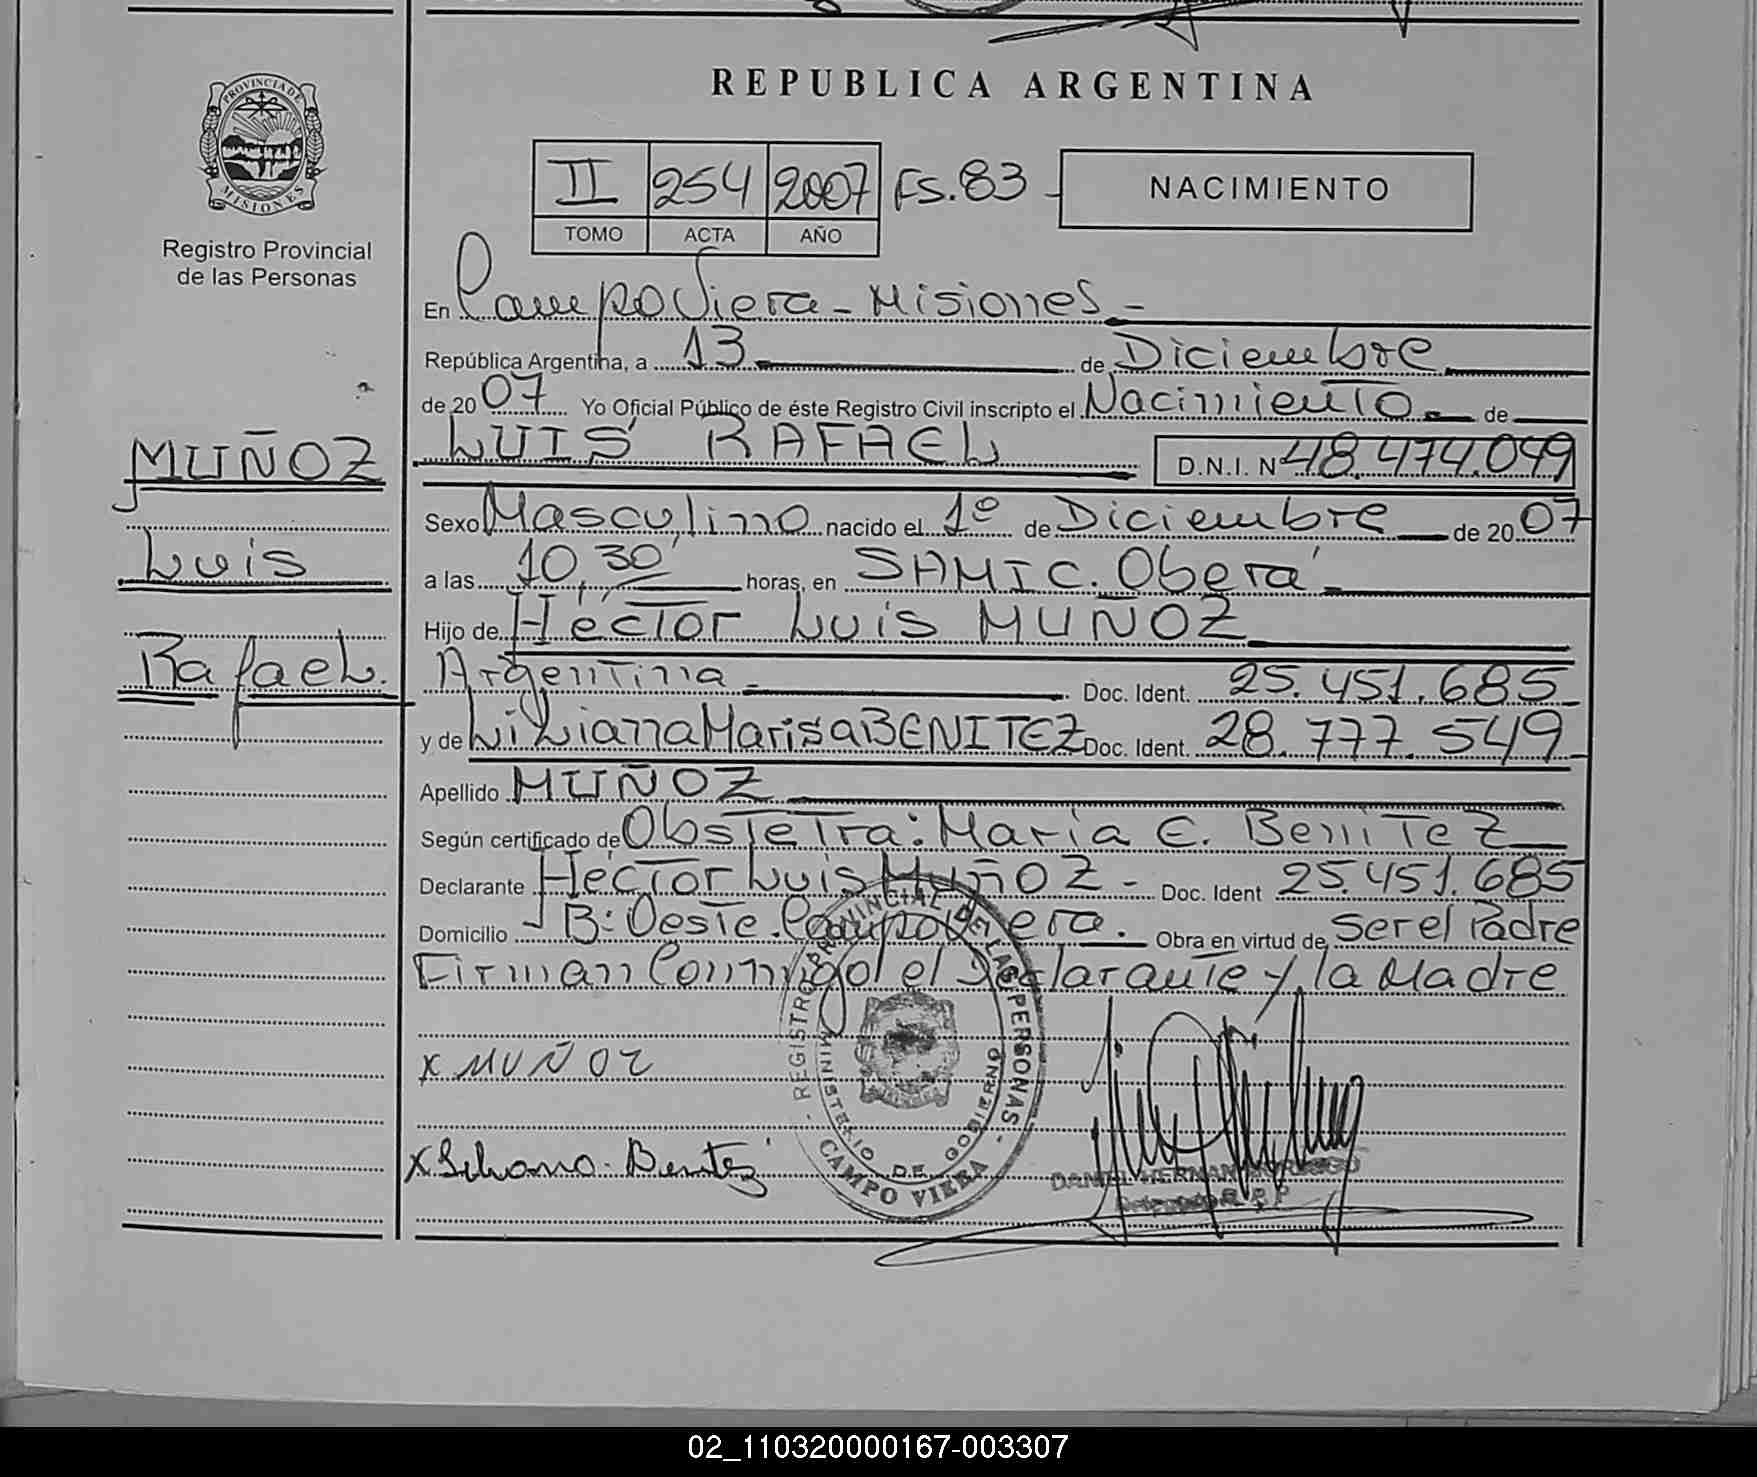 REPUBLICA ARGENTINA
PROVINCIA DE
MISIONES
Registro Provincial
de las Personas
II 254 2007 FS. 83 -
TOMO ACTA AÑO
NACIMIENTO
En Campo Viera - Misiones -
República Argentina, a 13 de Diciembre
de 2007 Yo Oficial Público de éste Registro Civil inscripto el Nacimiento de
MUÑOZ
Luis
Rafael.
LUIS RAFAEL D.N.I. Nº 48.474.049
Sexo Masculino nacido el 1º de Diciembre de 2007
a las 10,30' horas, en SAMIC. Oberá -
Hijo de Héctor Luis MUÑOZ
Argentina - Doc. Ident. 25.451.685
y de Liliana Marisa BENITEZ Doc. Ident. 28.777.549
Apellido MUÑOZ
Según certificado de Obstetra: María E. Benitez
Declarante Héctor Luis Muñoz - Doc. Ident 25.451.685
Domicilio B: Oeste. Campo Viera. Obra en virtud de ser el Padre
Firman Conmigo el Declarante y la Madre
X MUÑOZ
X Liliana Benitez
REGISTRO PROVINCIAL DE LAS PERSONAS
MINISTERIO DE GOBIERNO
CAMPO VIERA
DANIEL HERNAN
02_110320000167-003307